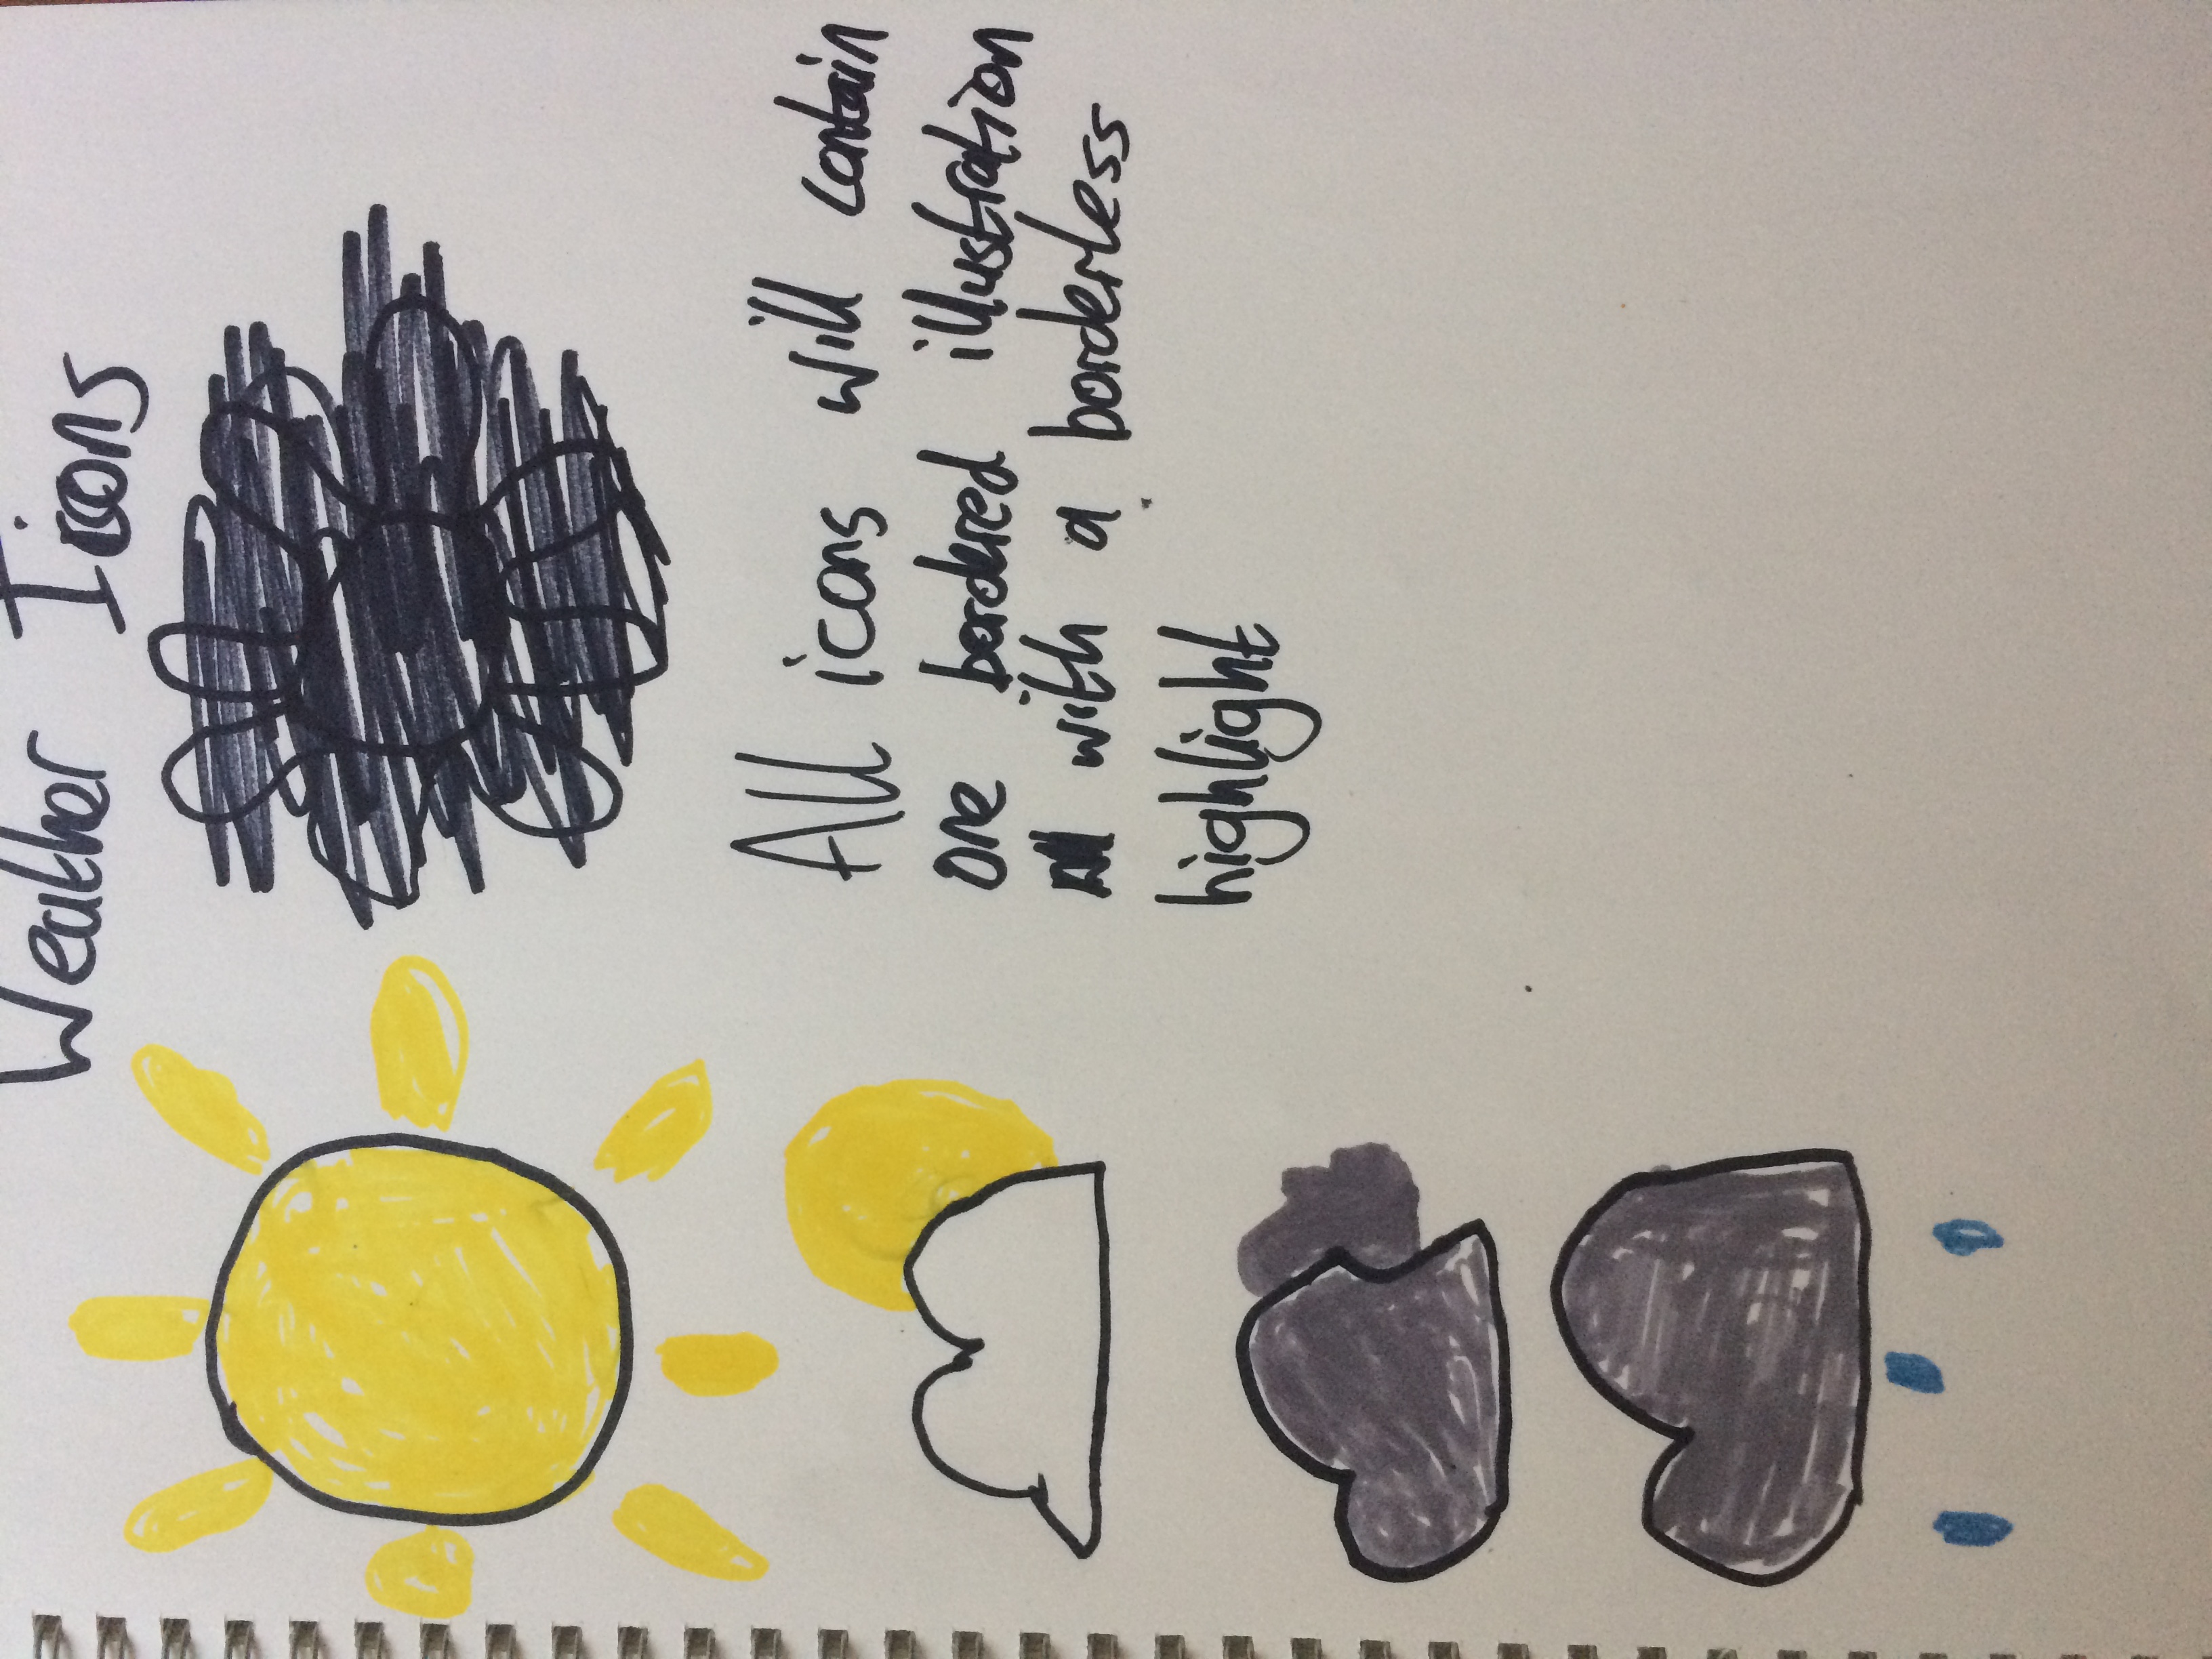 Weather Icons
All icons will contain
one bordered illustration
with a borderless
highlight